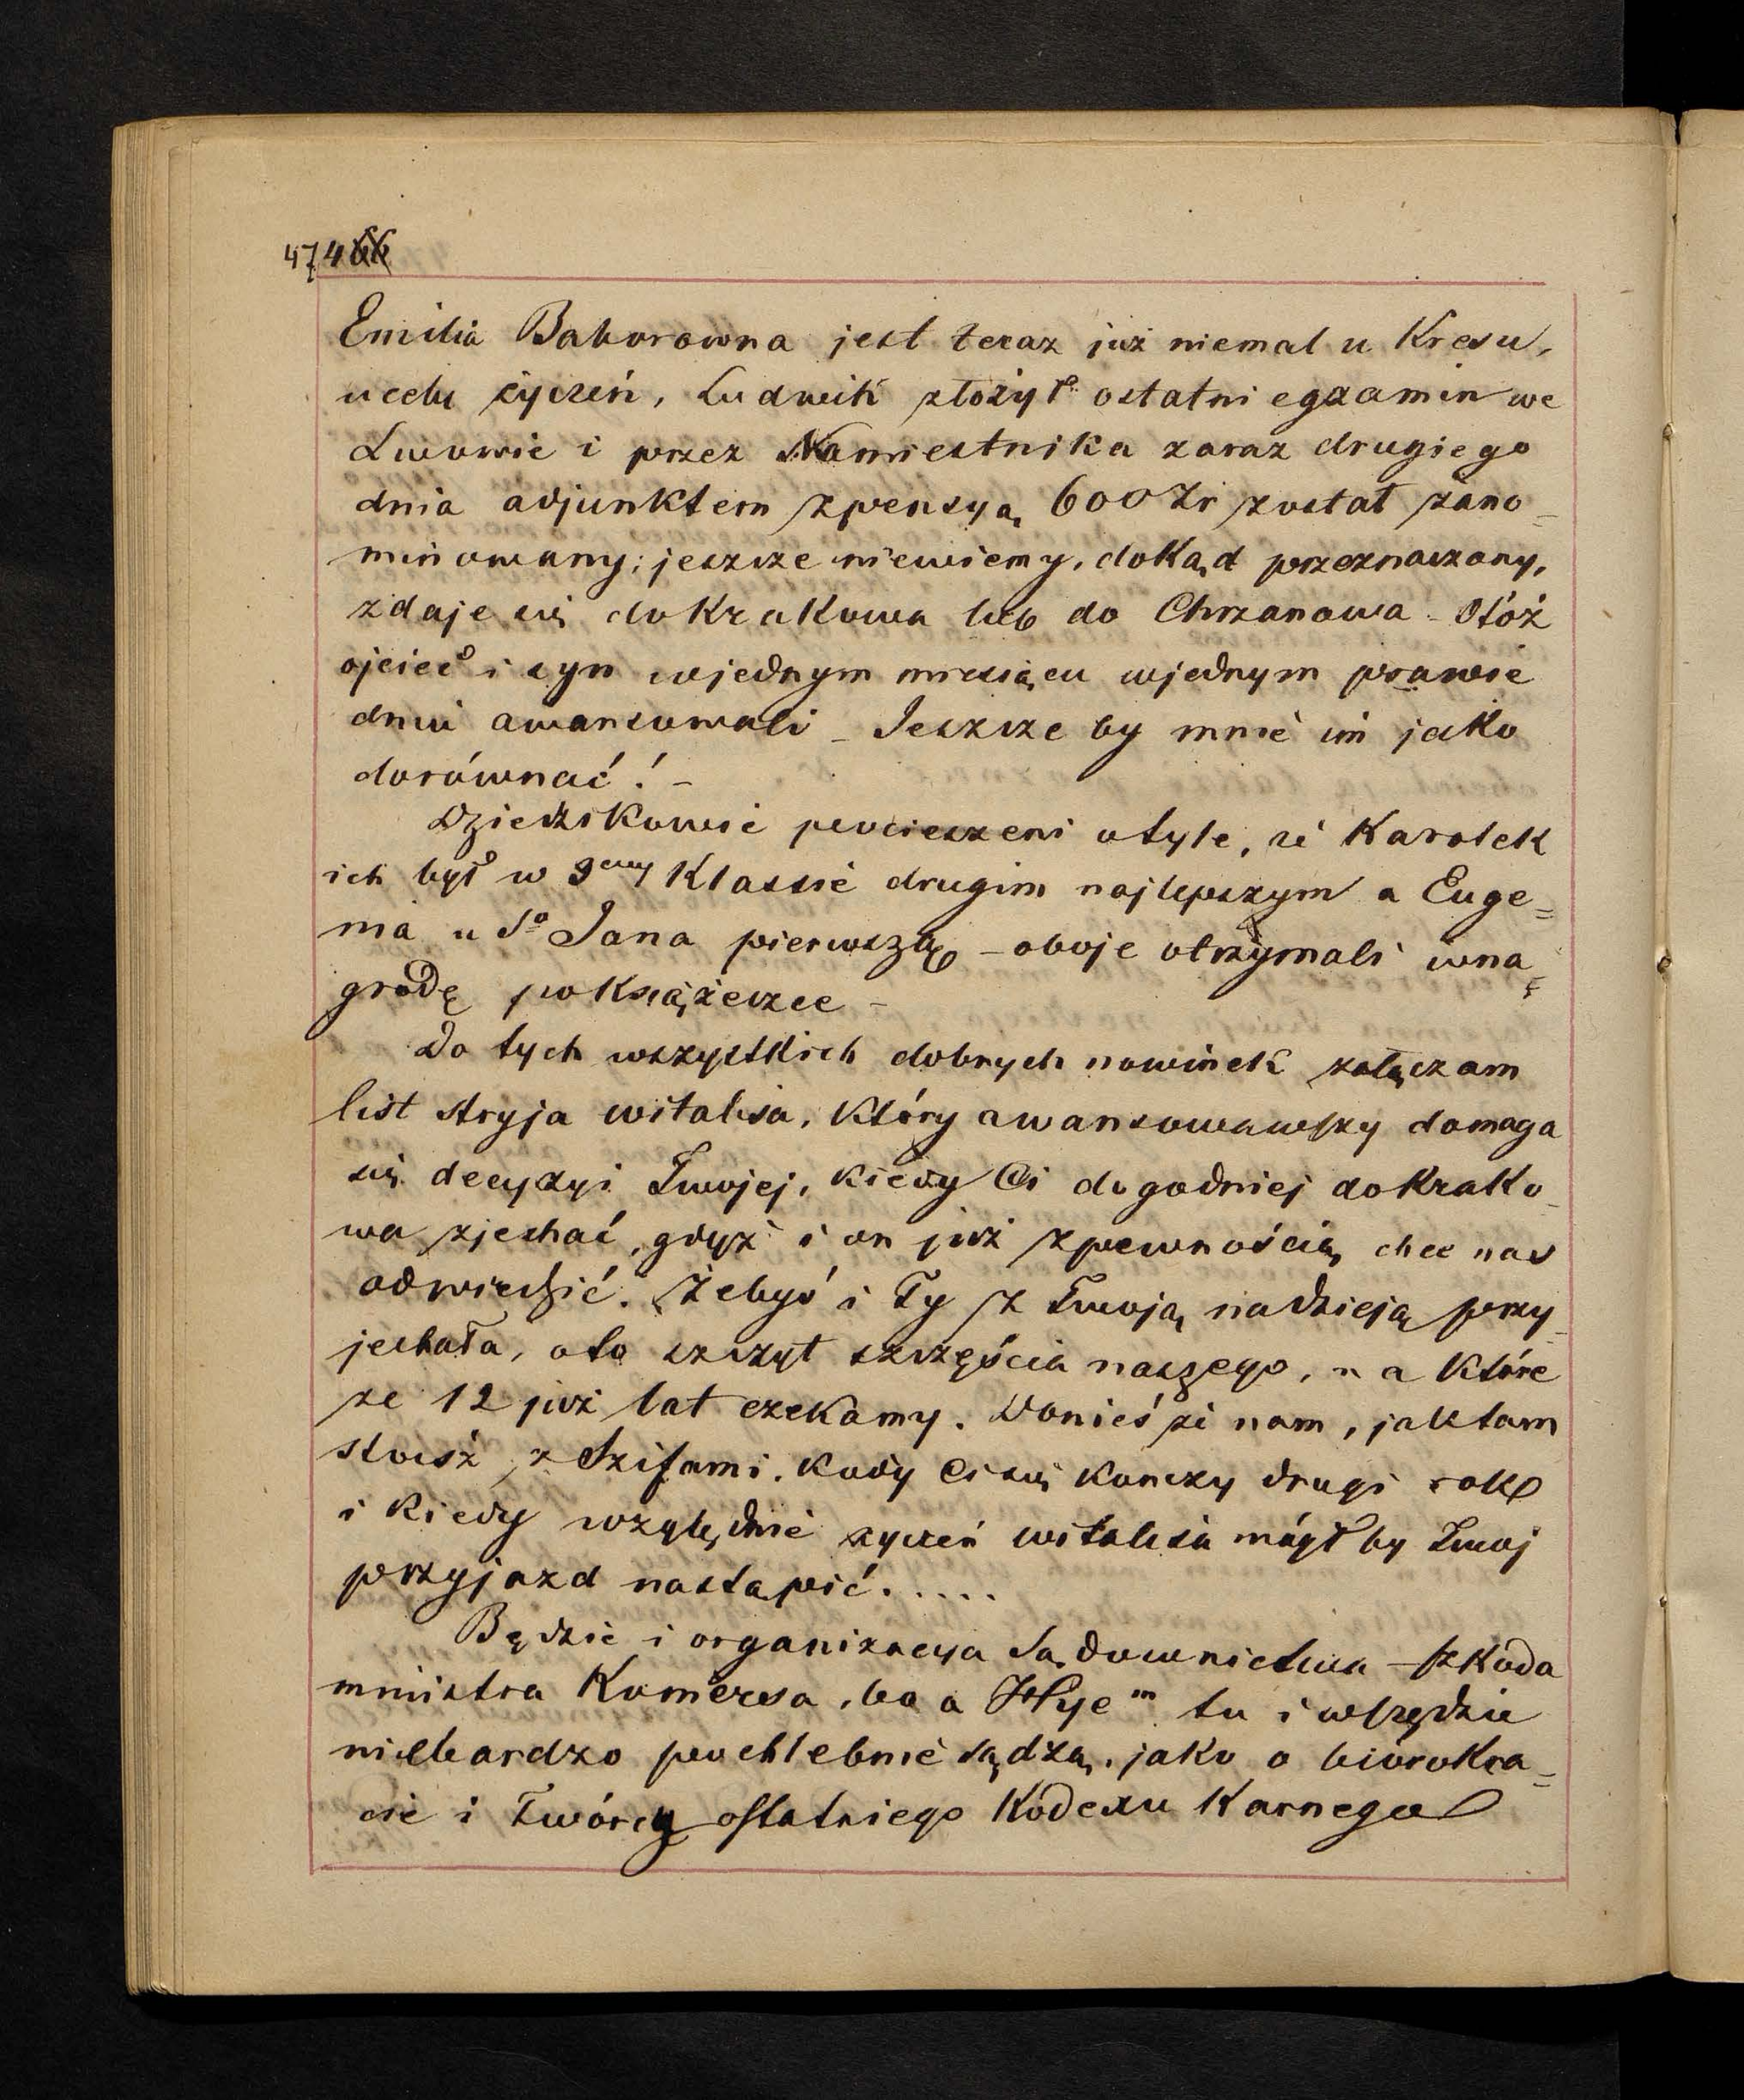 474 66
Emilia Baborowna jest teraz już niemal u Kresu,
u celu życzeń, Ludwik złożył ostatni egzamin we
Lwowie i przez Namiestnika zaraz drugiego
dnia adjunktem z pensyą 600 Zr został zano-
minowany; jeszcze niewiemy, dokąd przeznaczony,
zdaje się do Krakowa lub do Chrzanowa. Otóż
ojciec i syn wjednym miesiącu wjednym prawie
dniu awansowali – Jeszcze by mnie im jako
dorównać! –
Dziedzikowie pocieszeni otyle, że Karolek
ich był w 3ciej Klassie drugim najlepszym a Euge=
nia u So Jana pierwszą – oboje otrzymali wna-
grodę po Książeczce –
Do tych wszystkich dobrych nowinek załączam
list stryja Witalisa, Który awansowawszy domaga
się decyzyi Twojej, Kiedy Ci dogodniej do Krako-
wa zjechać, gdyż i on już z pewnością chce nas
odwiedzić. Żebyś i Ty z Twoją nadzieją przy-
jechała, oto szczyt szczęścia naszego, na Które
ze 12 już lat czekamy. Donieś że nam, jak tam
stoisz z Szifami. Kiedy Ci się Kończy drugi rok
i Kiedy względnie życzeń Witalisa mógł by Twoj
przyjazd nastąpić.....
Będzie i organizacya Sądownictwa – szkoda
ministra Komersa, bo o Hye m tu i wszędzie
niebardzo pochlebnie sądzą, jako o biórokra=
cie i Twórcy ostatniego Kodexu Karnego